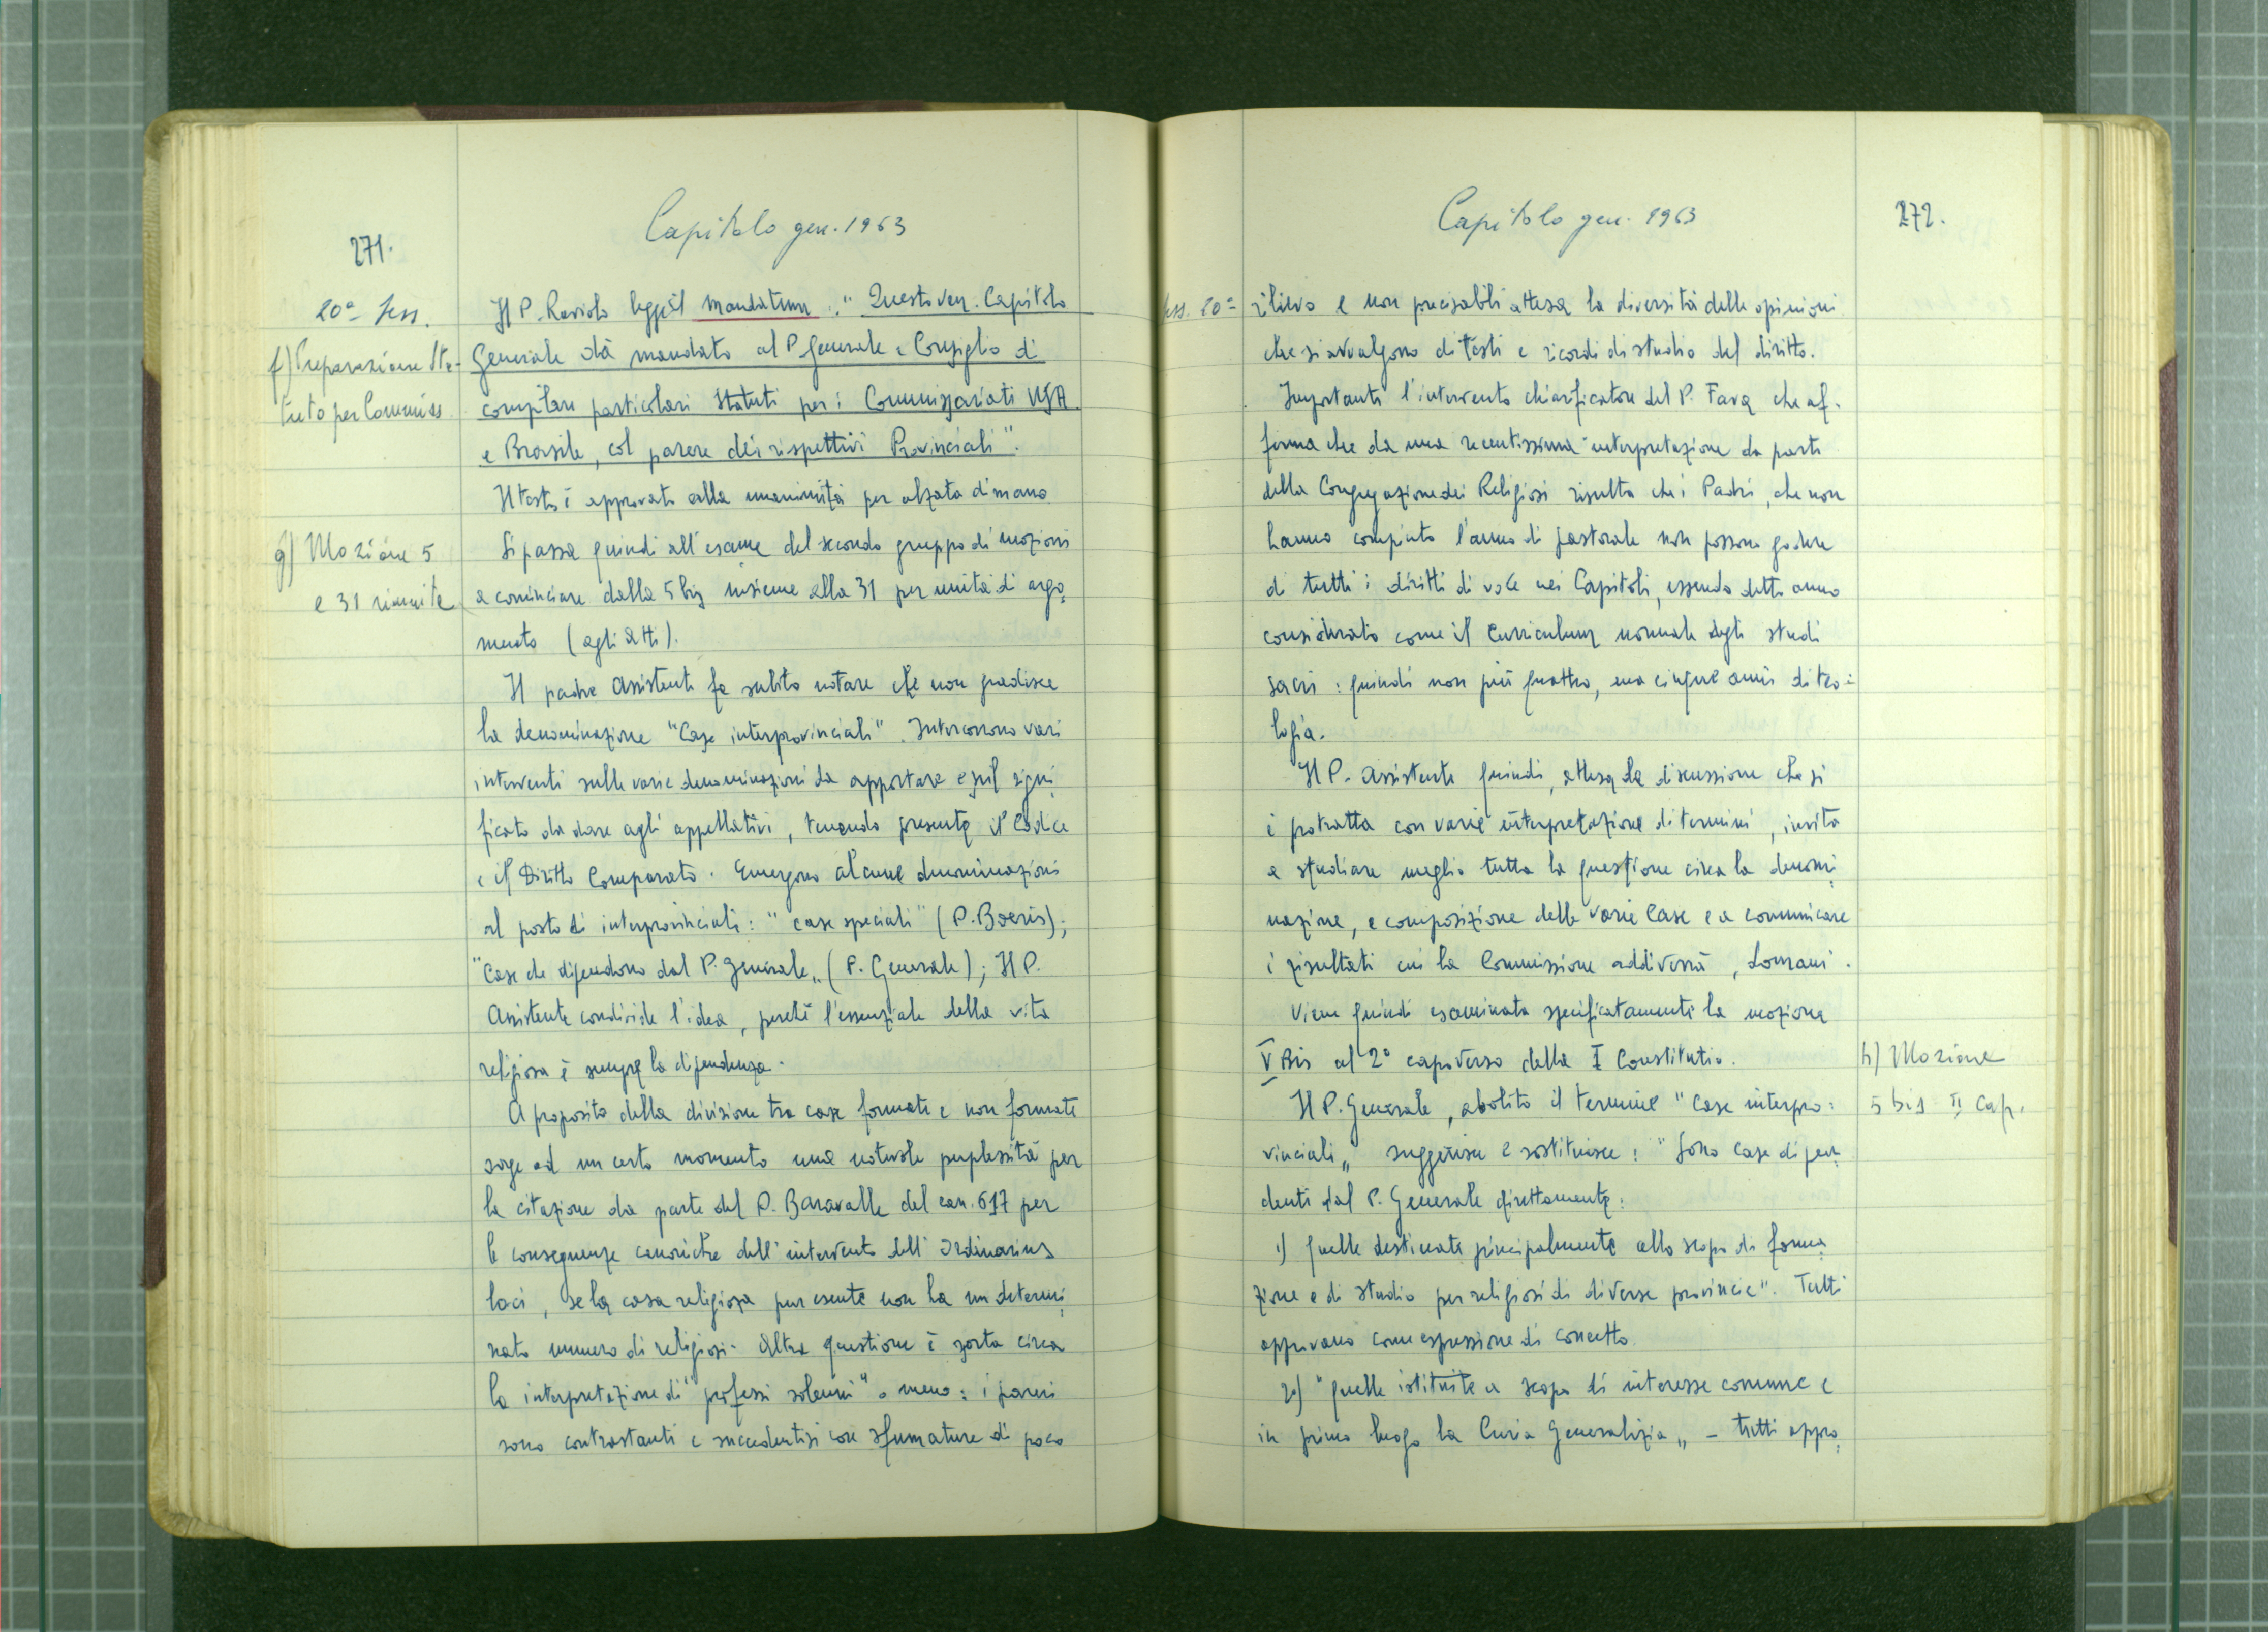 271.
Capitolo gen. 1963
20ª Sess.
f) Preparazione Sta-
tuto per Commiss.
Il P. Raviolo legge il mandatum: "Questo Ven. Capitolo
Generale dà mandato al P. Generale e Consiglio di
compilare particolari Statuti per i Commissariati USA
e Brasile, col parere dei rispettivi Provinciali".
Il testo è approvato alla unanimità per alzata di mano
g) Mozione 5
e 31 riunite
Si passa quindi all'esame del secondo gruppo di mozioni
a cominciare dalla 5 bis insieme alla 31 per unità di argo
mento (agli atti).
Il padre Assistente fa subito notare che non gradisce
la denominazione "Case interprovinciali". Intercorrono vari
interventi sulle varie denominazioni da apportare e sul signi
ficato da dare agli appellativi, tenendo presente il Codice
e il Diritto Comparato. Emergono alcune denominazioni
al posto di interprovinciali: "case speciali" (P. Boeris);
"Case che dipendono dal P. Generale„ (P. Generale); Il P.
Assistente condivide l'idea, perchè l'essenziale della vita
religiosa è sempre la dipendenza.
A proposito della divisione tra case formate e non formate
sorge ad un certo momento una notevole perplessità per
la citazione da parte del P. Baravalle del can. 617 per
le conseguenze canoniche dell'intervento dell'Ordinarius
loci, se la casa religiosa pur esente non ha un determi
nato numero di religiosi. Altra questione è sorta circa
la interpretazione di "professi solenni" o meno: i pareri
sono contrastanti e succedentisi con sfumature di poco
Capitolo gen. 1963
272.
Sess. 20ª
rilievo e non precisabili attesa la diversità delle opinioni
che si avvalgono di testi e ricordi di studio del diritto.
Importante l'intervento chiarificatore del P. Fava che af-
ferma che da una recentissima interpretazione da parte
della Congregazione dei Religiosi risulta che i Padri, che non
hanno compiuto l'anno di pastorale non possono godere
di tutti i diritti di voce nei Capitoli, essendo detto anno
considerato come il Curriculum normale degli studi
sacri: quindi non più quattro, ma cinque anni di teo=
logia.
Il P. Assistente quindi, attesa la discussione che si
è protratta con varie interpretazione di termini, invita
a studiare meglio tutta la questione circa la denomi
nazione, e composizione delle varie Case e a comunicare
i risultati cui la Commissione addiverrà, domani.
Viene quindi esaminata specificatamente la mozione
V Bis al 2° capoverso della I Constitutio.
h) Mozione
5 bis II cap.
Il P. Generale, abolito il termine "case interpro=
vinciali„ suggerisce e sostituisce: "Sono case dipen
denti dal P. Generale direttamente:
1) quelle destinate principalmente allo scopo di forma
zione e di studio per religiosi di diverse provincie". Tutti
approvano come espressione di concetto.
2) "quelle istituite a scopo di interesse comune e
in primo luogo la Curia Generalizia„ - tutti appro